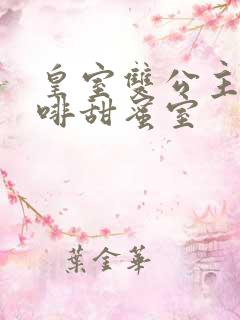 皇室雙公主
啡甜蜜室
葉金華